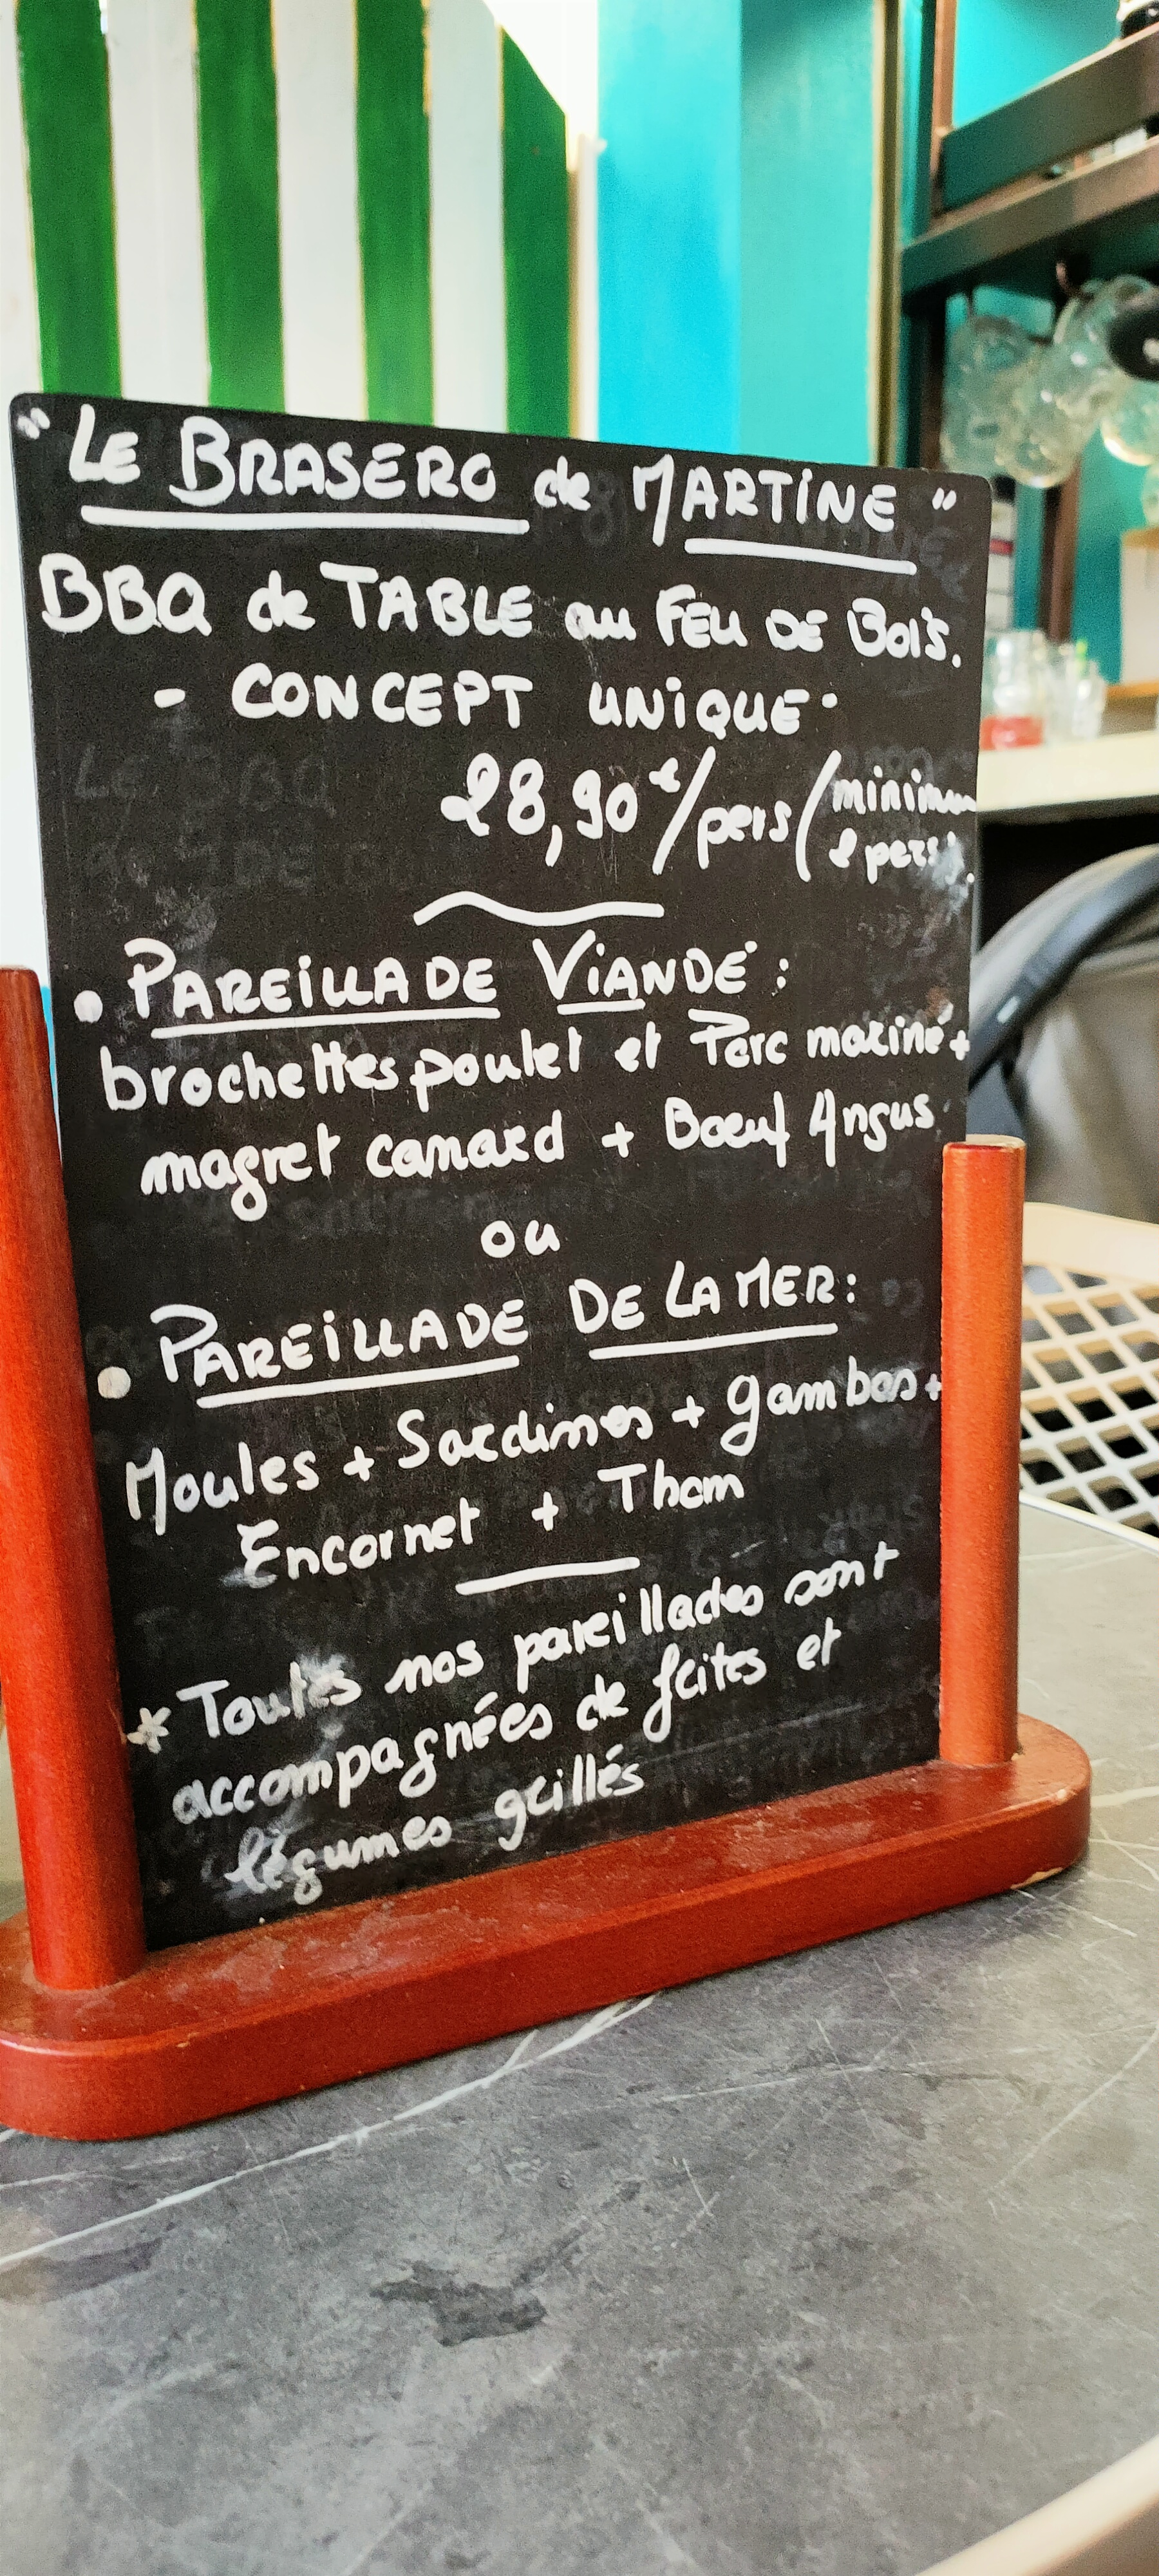 "LE BRASERO de MARTINE"
BBQ de TABLE au FEU DE BOIS.
- CONCEPT UNIQUE -
28,90€/pers (minimum
2 pers).
• PAREILLADE VIANDE :
brochettes poulet et Porc mariné +
magret canard + Boeuf Angus
ou
• PAREILLADE DE LA MER :
Moules + Sardines + gambas +
Encornet + Thon
* Toutes nos pareillades sont
accompagnées de frites et
légumes grillés